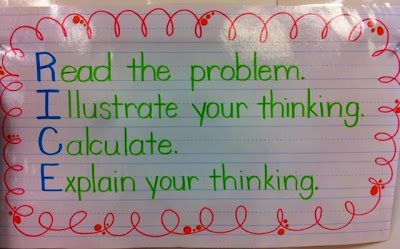 Read the problem.
Illustrate your thinking.
Calculate.
Explain your thinking.